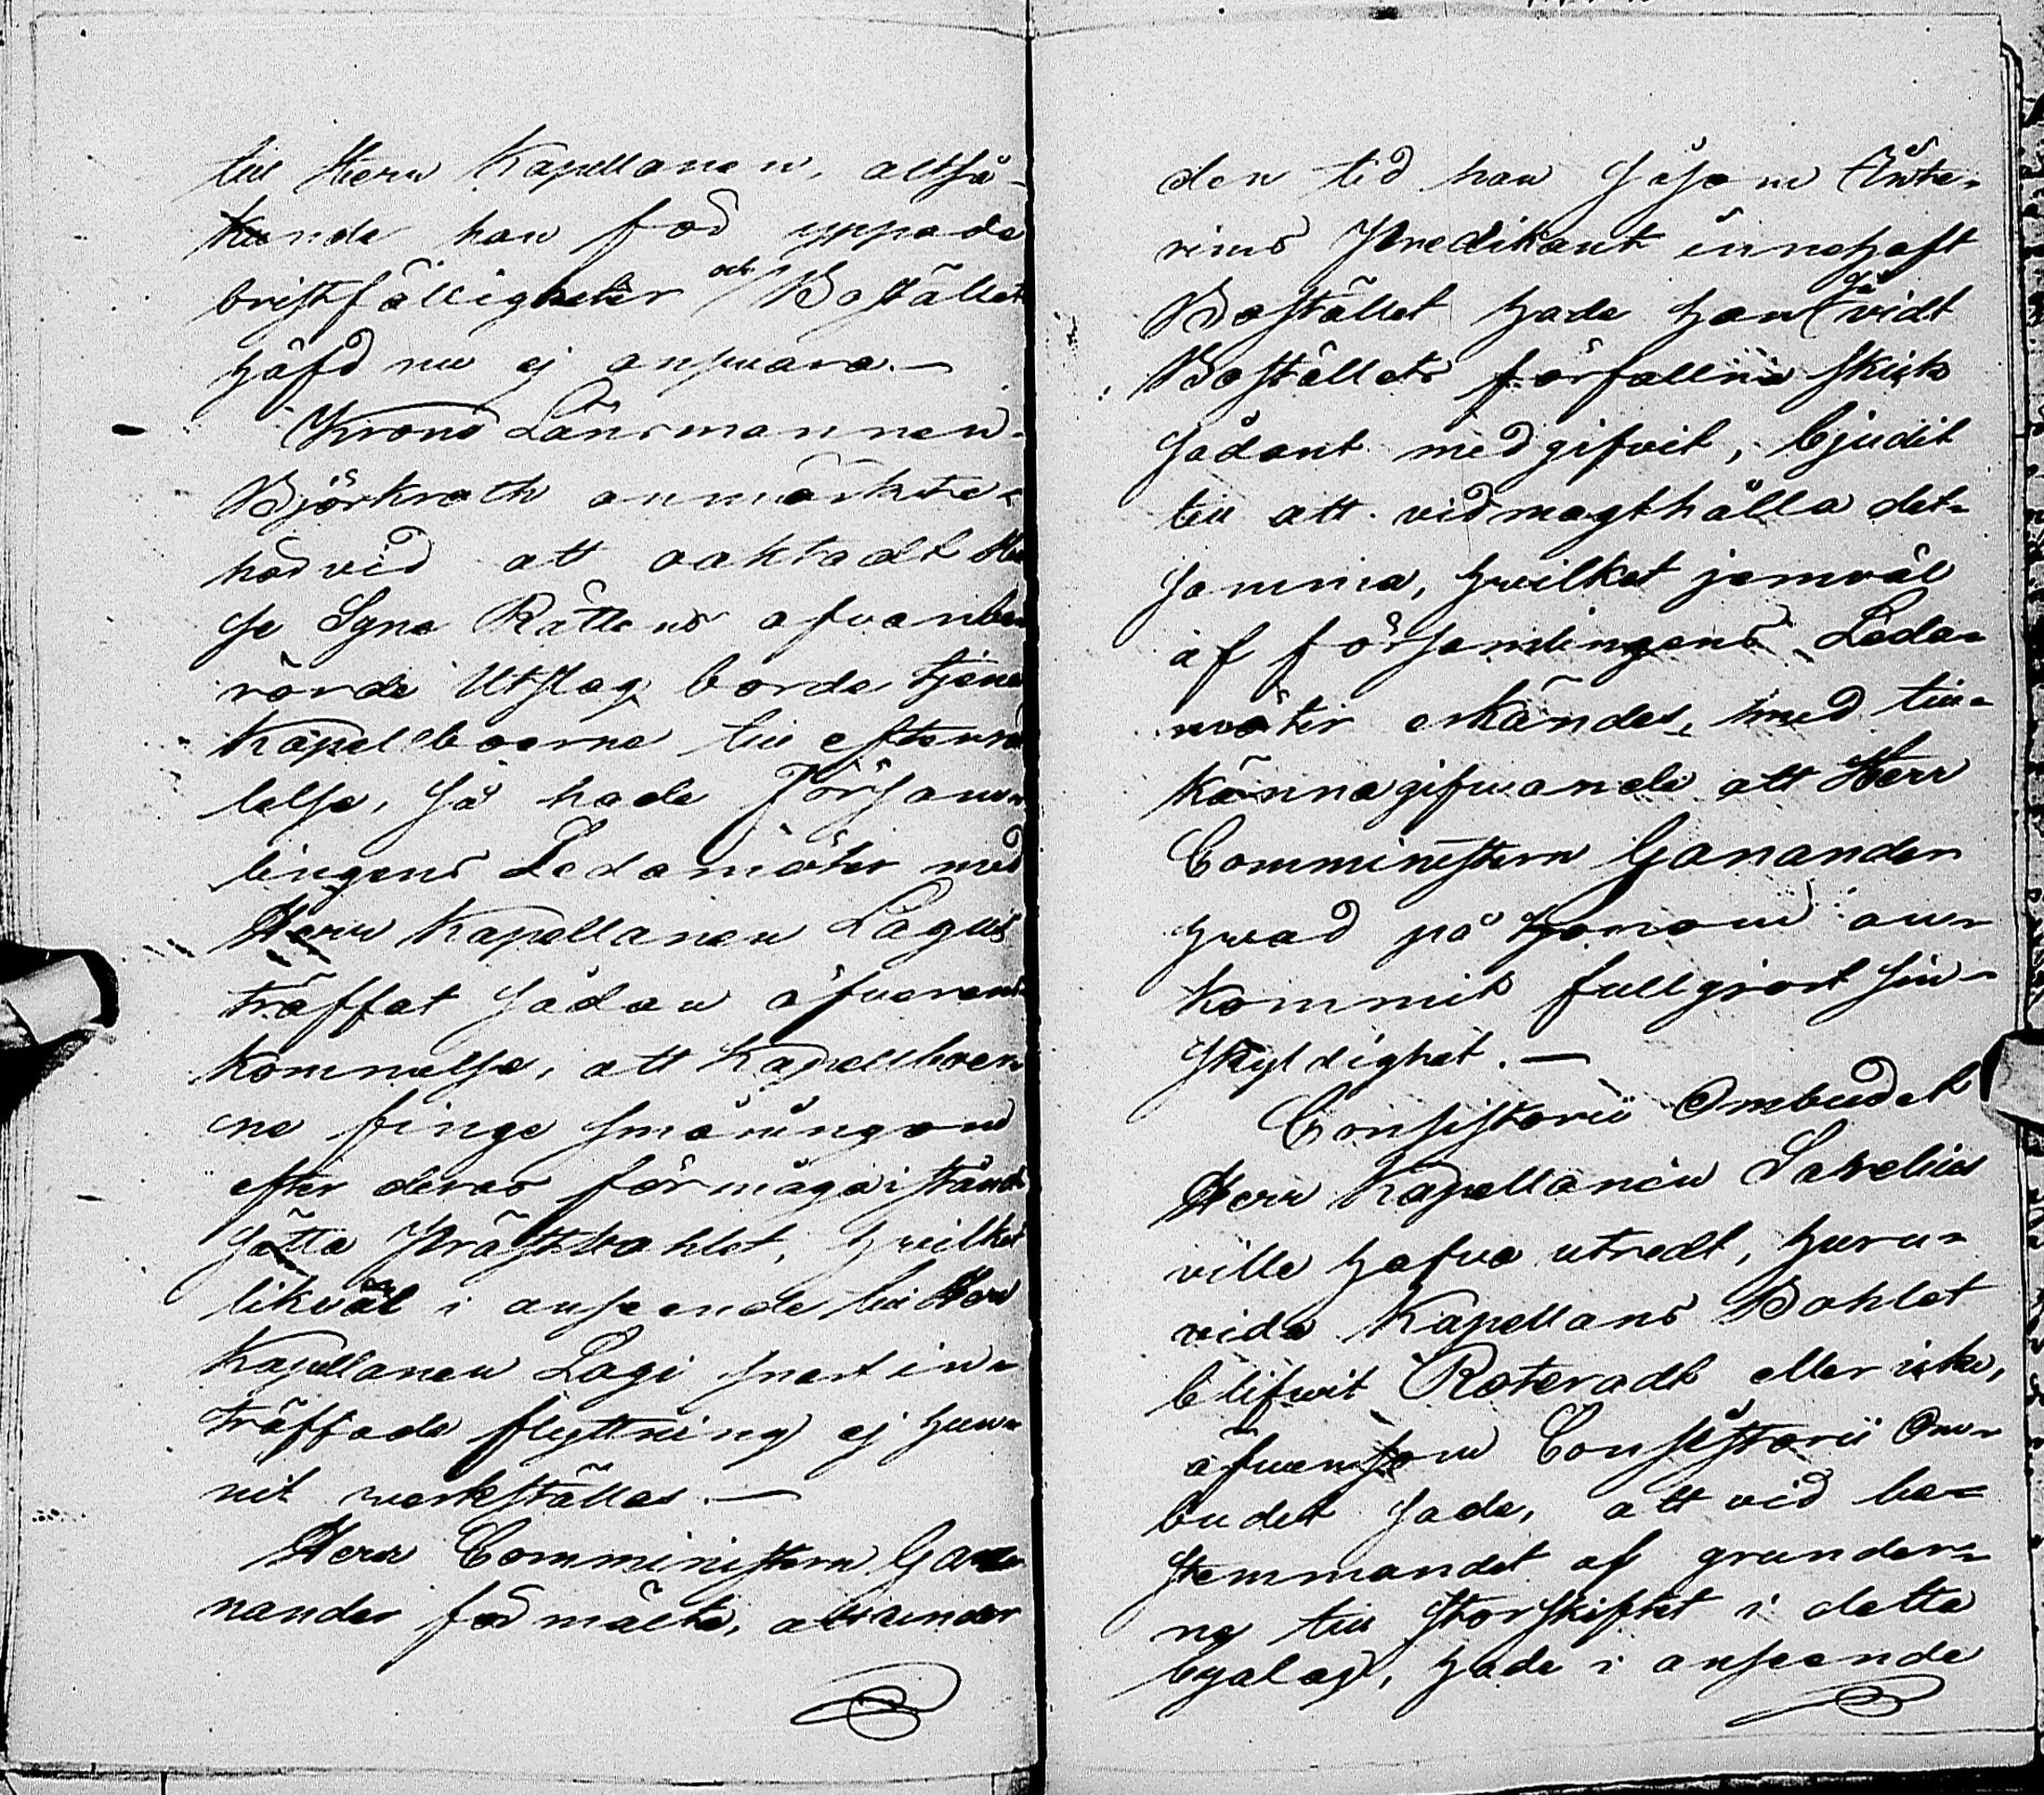 till Herr Kapellanen, altså
kunde han för uppada
bristfälligheter och Boställets
häfd nu ej answara.—
Krono Länsmannen
Björkroth anmärkte
härvid att oaktadt Hä
se Syne Rättens ofvanbe
rörde Utslag borde tjena
Kapellboerne till efterrät
telse, så hade Försam-
lingens Ledamöter med
Herr Kapellanen Lagus
träffat sådan öfverens
kommelse, att Kapellboer
ne finge småningom
efter deras förmåga iståndt
sätta Prästbohlet, hvilket
likväl i anseende till Herr
Kapellanen Lagi snart in-
träffade flyttning ej hun-
nit verkställas.—
Herr Comministern Ga-
nander förmälte, att under
den tid han såsom Inte-
rims Predikant innehaft
Bostället hade han så vidt
Boställets förfallna skick
sådant medgifvit, bjudit
till att vidmagthålla det-
samma, hvilket jemväl
af församlingens Leda-
möter erkändes, med till-
kännagifvande att Herr
Comministern Ganander
hvad på honom an-
kommit fullgjort sin
skyldighet.—
Consistorii Ombudet
Herr Kapellanen Salvelius
ville hafva utredt, huru-
vida Kapellans Bohlet
blifvit Roteradt eller icke,
äfvensom Consistorii Om-
budet sade, att vid be-
stemmandet af grunder-
ne till Storskiftet i detta
byalag, hade i anseende